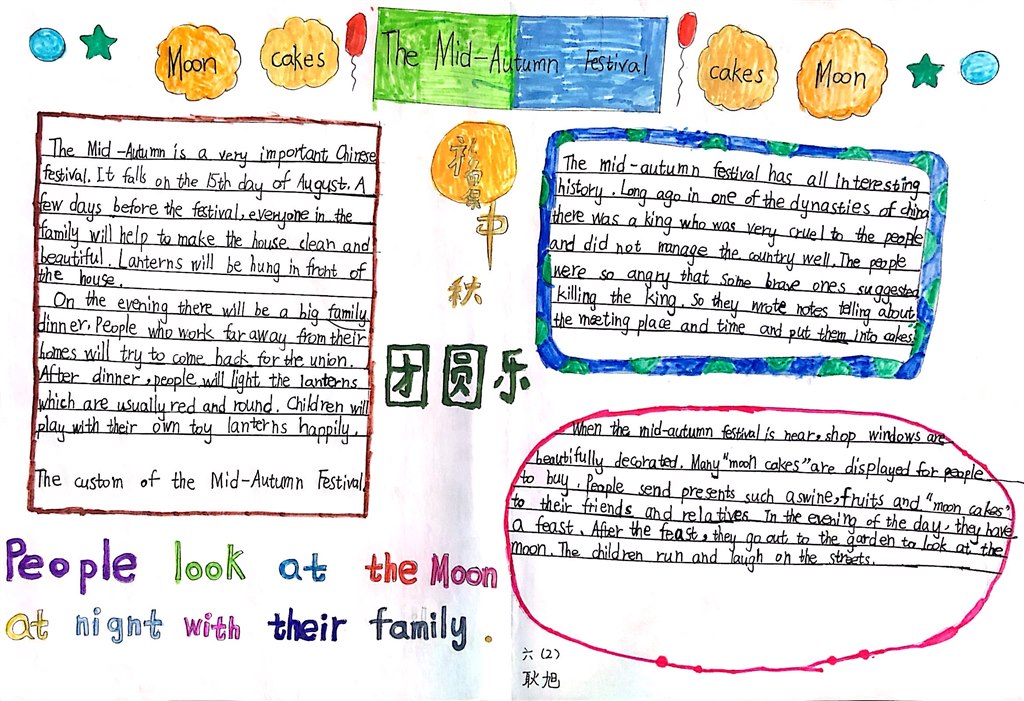 Moon
cakes
The Mid-Autumn Festival
cakes
Moon
The Mid-Autumn is a very important Chinese
festival. It falls on the 15th day of August. A
few days before the festival, everyone in the
family will help to make the house clean and
beautiful. Lanterns will be hung in front of
the house.
On the evening there will be a big family
dinner. People who work far away from their
homes will try to come back for the union.
After dinner, people will light the lanterns
which are usually red and round. Children will
play with their own toy lanterns happily.
The custom of the Mid-Autumn Festival
福
中
秋
团圆乐
The mid-autumn festival has all interesting
history. Long ago in one of the dynasties of china
there was a king who was very cruel to the people
and did not manage the country well. The people
were so angry that some brave ones suggested
killing the king. So they wrote notes telling about
the meeting place and time and put them into cakes.
When the mid-autumn festival is near, shop windows are
beautifully decorated. Many "moon cakes" are displayed for people
to buy. People send presents such aswine, fruits and "moon cakes"
to their friends and relatives. In the evening of the day, they have
a feast. After the feast, they go out to the garden to look at the
moon. The children run and laugh on the streets.
People look at the Moon
at nignt with their family.
六(2)
耿旭